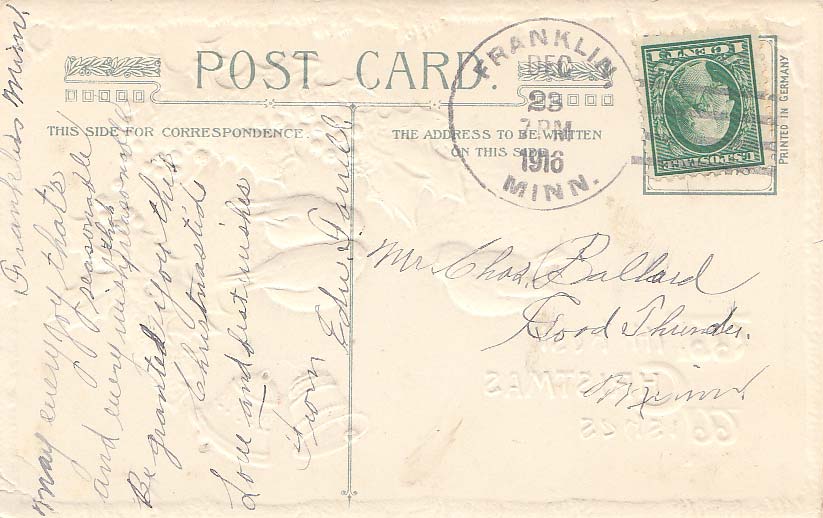 POST CARD.
THIS SIDE FOR CORRESPONDENCE.
THE ADDRESS TO BE WRITTEN
ON THIS SIDE
FRANKLIN,
DEC
23
7 PM
1916
MINN.
1 CENT 1
U.S. POSTAGE
PRINTED IN GERMANY
Franklin Minn,
May every joy that's
seasonable
and every wish that
reasonable
Be granted you this
Christmastide
Love and best wishes
from Edw.
Mr Chas. Ballard
Good Thunder.
Minn.
CHRISTMAS